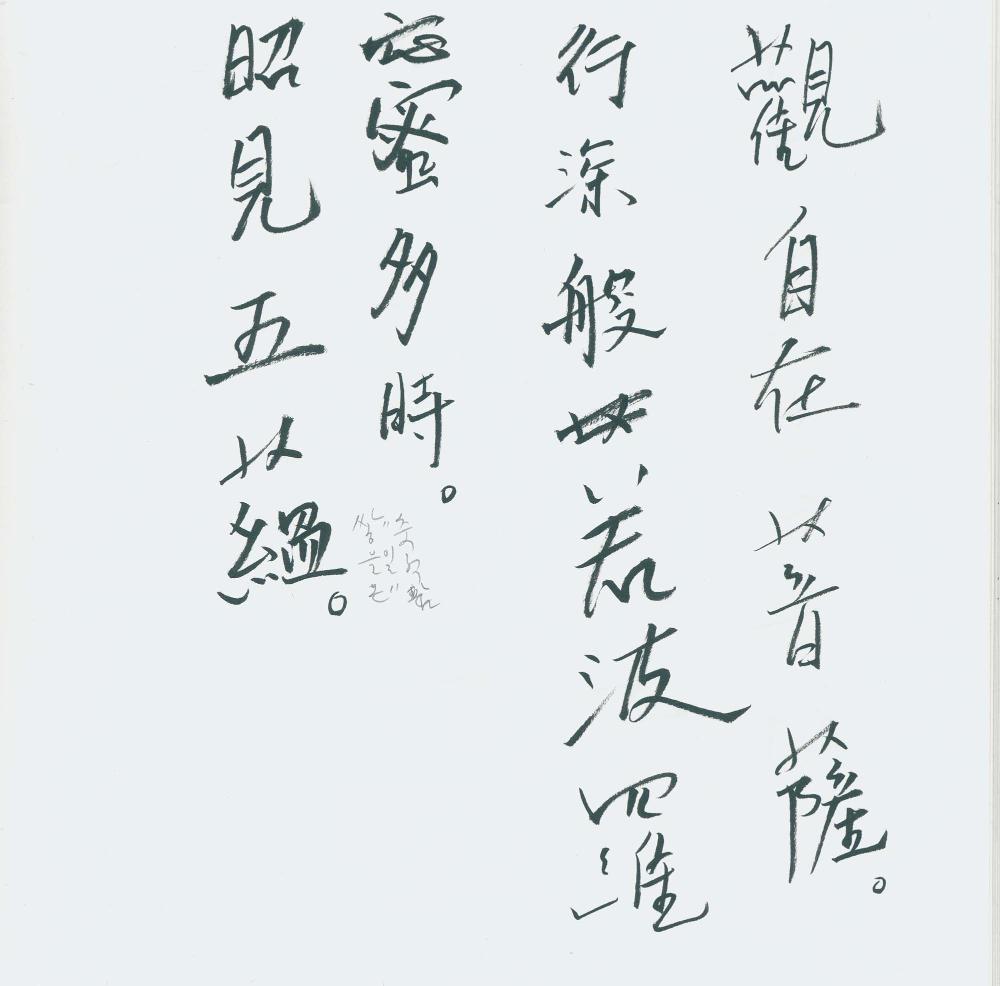 觀自在菩薩。
行深般若波羅
蜜多時。
昭見五蘊。